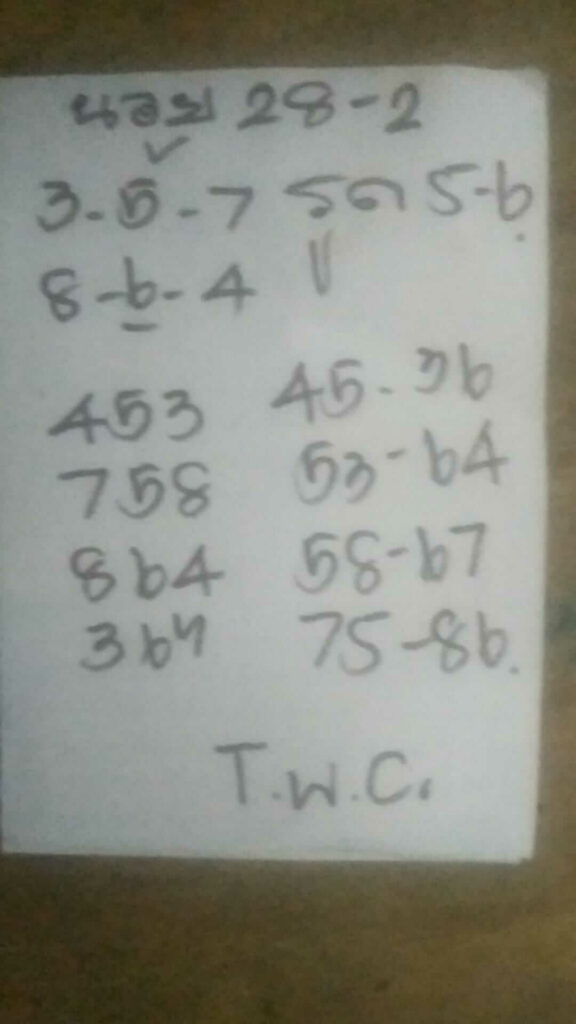 นอย 28-2
3-5-7 รูด 5-6.
8-6-4
453 45-36
758 53-64
864 58-67
367 75-86.
T.W.C.